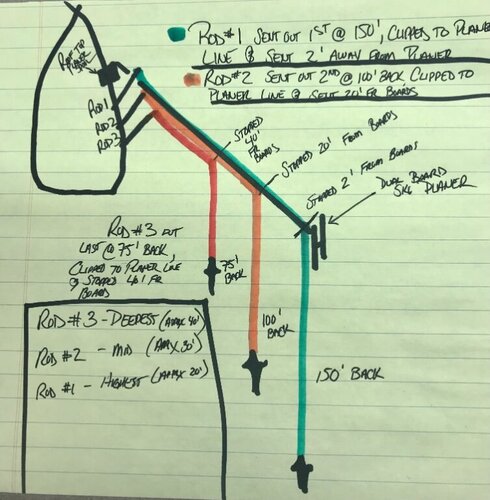 ROD #1 SENT OUT 1ST @ 150', CLIPPED TO PLANER
LINE & SENT 2' AWAY FROM PLANER
ROD #2 SENT OUT 2ND @ 100' BACK CLIPPED TO
PLANER LINE @ SENT 20' FR BOARDS
ROD 1
ROD 2
ROD 3
STOPPED
40'
FR
BOARDS
STOPPED 20' FROM BOARDS
STOPPED 2' FROM BOARDS
DUAL BOARD
SKI PLANER
ROD #3 OUT
LAST @ 75' BACK,
CLIPPED TO PLANER LINE
@ STOPPED 40' FR
BOARD
75'
BACK
100'
BACK
150' BACK
ROD #3 - DEEPEST (APPX 40')
ROD #2 - MID (APPX 30')
ROD #1 - HIGHEST (APPX 20')